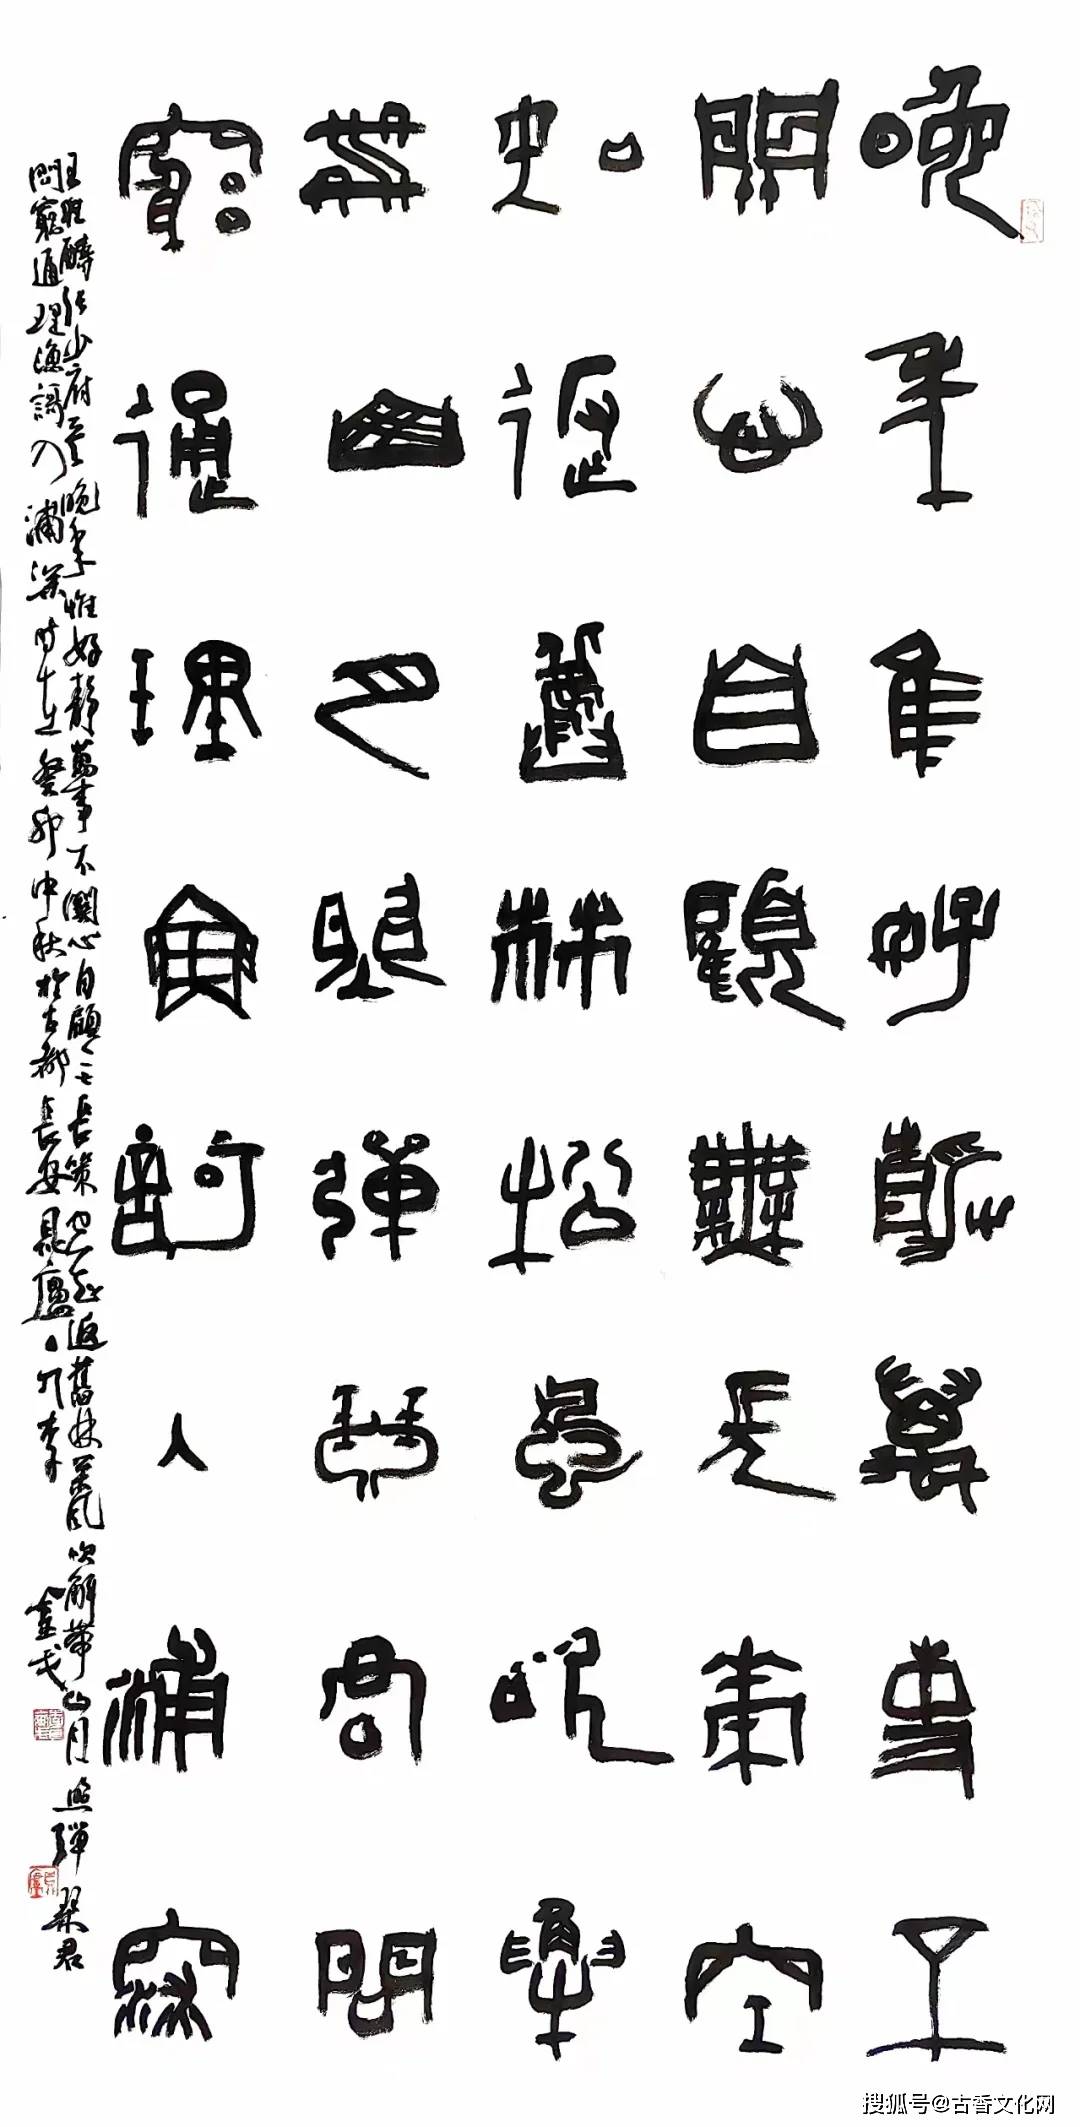 晚年隹好靜萬事不
關心自顧無長策空
知返舊林松風吹解
帶山月照彈琴君問
窮通理漁訶入浦深
王維酬張少府 晚年惟好靜萬事不關心自顧無長策空知返舊林松風吹解帶山月照彈琴君
問窮通理漁謌入浦深 时在癸卯中秋於古都長安 李金戈
搜狐号@古香文化网